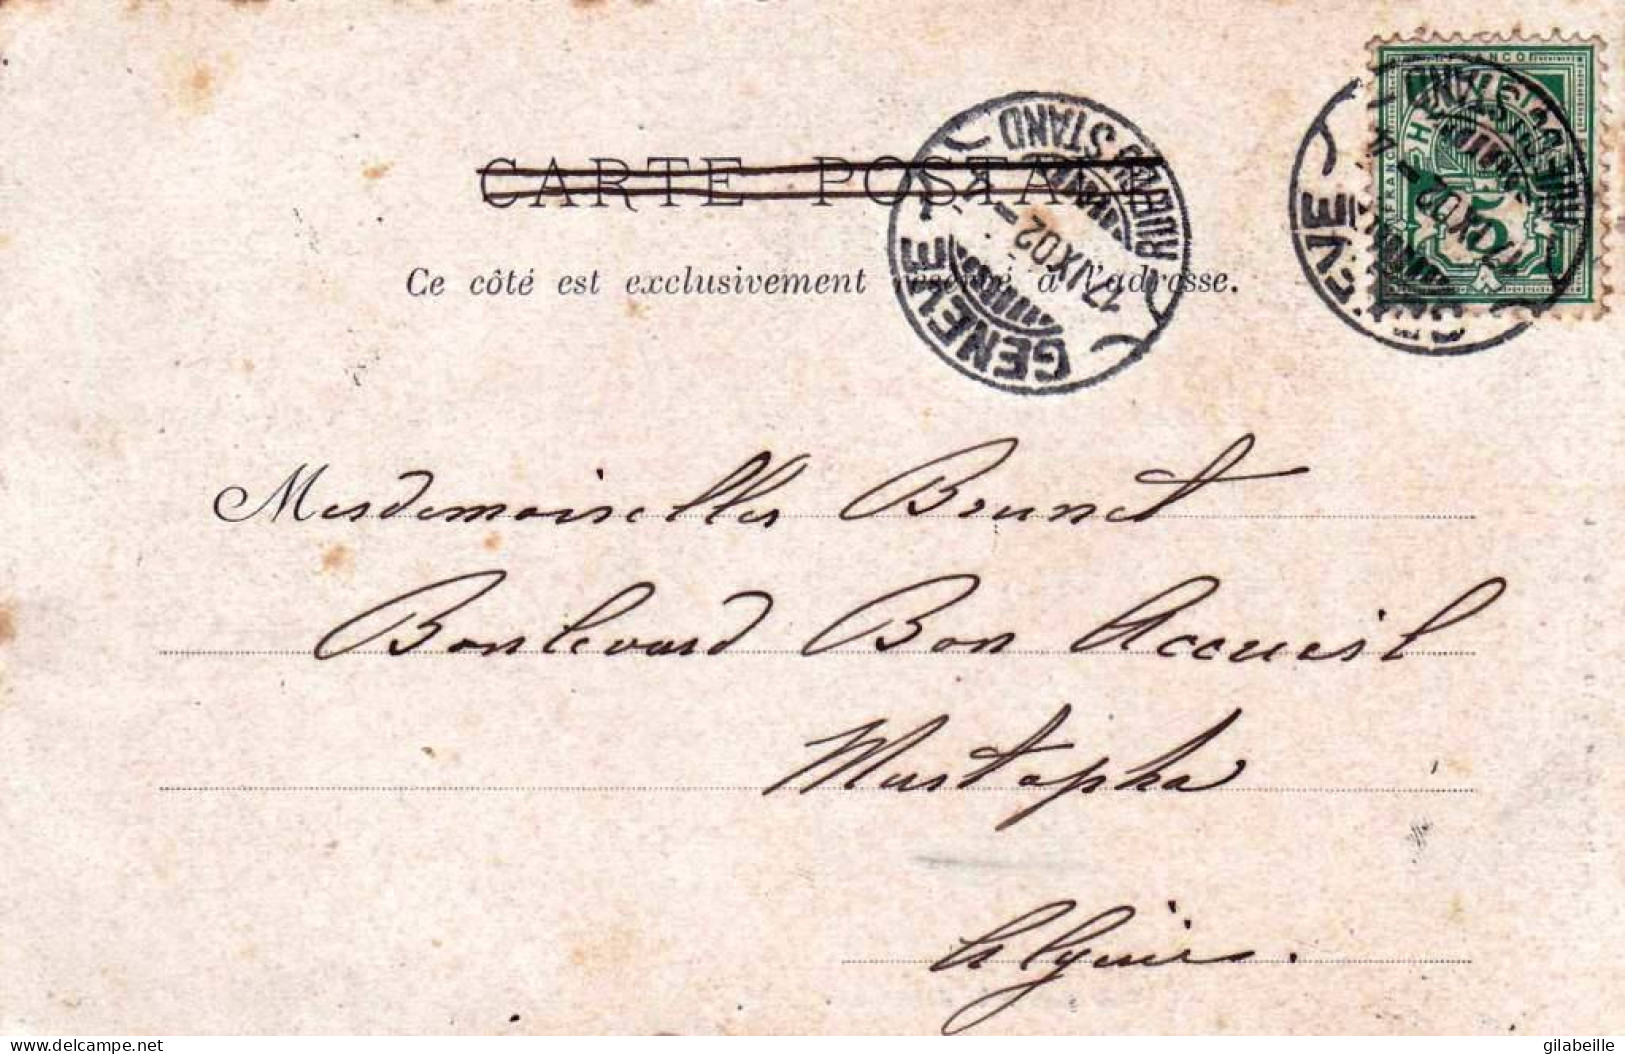 CARTE POSTALE
Ce côté est exclusivement réservé à l'adresse.
GENÈVE
RUE DU STAND
17.IX.02
FRANCO
HELVETIA
5
Mesdemoiselles Brunet
Boulevard Bon Accueil
Mustapha
Algérie.
delcampe.net
gilabeille